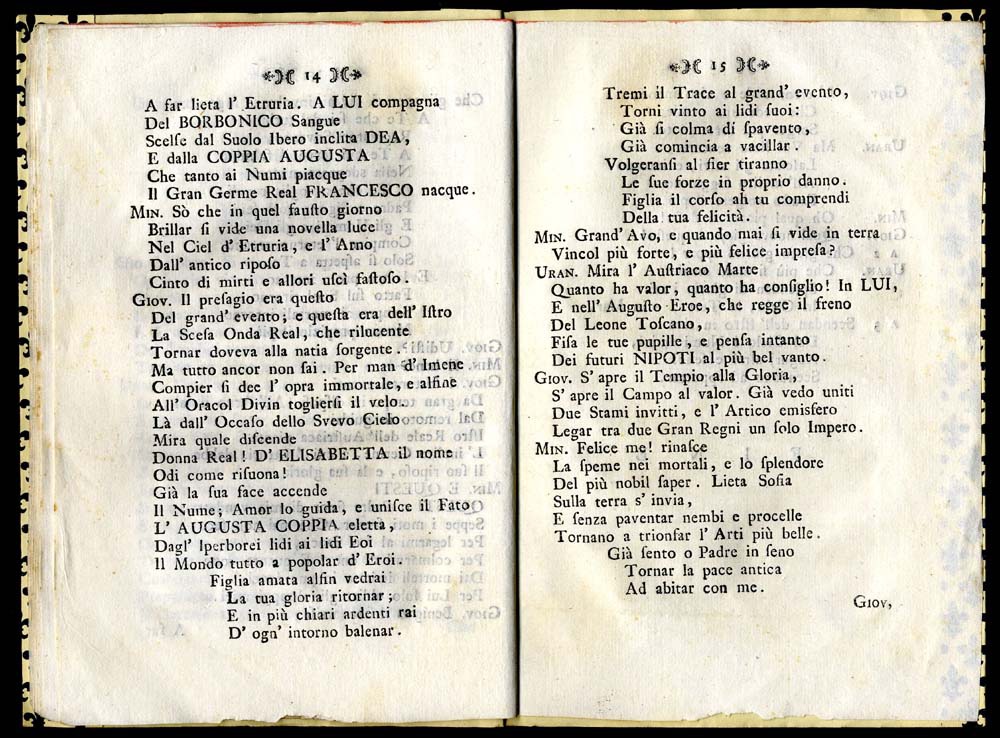 14
A far lieta l' Etruria. A LUI compagna
Del BORBONICO Sangue
Scelſe dal Suolo Ibero inclita DEA,
E dalla COPPIA AUGUSTA
Che tanto ai Numi piacque
Il Gran Germe Real FRANCESCO nacque.
MIN. Sò che in quel fauſto giorno
Brillar ſi vide una novella luce
Nel Ciel d' Etruria, e l' Arno
Dall' antico ripoſo
Cinto di mirti e allori uſcì faſtoſo.
GIOV. Il preſagio era queſto
Del grand' evento; e queſta era dell' Iſtro
La Sceſa Onda Real, che rilucente
Tornar doveva alla natia ſorgente.
Ma tutto ancor non ſai. Per man d' Imene
Compier ſi dee l' opra immortale, e alfine
All' Oracol Divin toglierſi il velo.
Là dall' Occaſo dello Svevo Cielo
Mira quale diſcende
Donna Real! D' ELISABETTA il nome
Odi come riſuona!
Già la ſua face accende
Il Nume; Amor lo guida, e uniſce il Fato
L' AUGUSTA COPPIA eletta,
Dagl' Iperborei lidi ai lidi Eoi
Il Mondo tutto a popolar d' Eroi.
Figlia amata alfin vedrai
La tua gloria ritornar;
E in più chiari ardenti rai
D' ogn' intorno balenar.
15
Tremi il Trace al grand' evento,
Torni vinto ai lidi ſuoi:
Già ſi colma di ſpavento,
Già comincia a vacillar.
Volgeranſi al fier tiranno
Le ſue forze in proprio danno.
Figlia il corſo ah tu comprendi
Della tua felicità.
MIN. Grand' Avo, e quando mai ſi vide in terra
Vincol più forte, e più felice impreſa?
URAN. Mira l' Auſtriaco Marte
Quanto ha valor, quanto ha conſiglio! In LUI,
E nell' Auguſto Eroe, che regge il freno
Del Leone Toſcano,
Fiſa le tue pupille, e penſa intanto
Dei futuri NIPOTI al più bel vanto.
GIOV. S' apre il Tempio alla Gloria,
S' apre il Campo al valor. Già vedo uniti
Due Stami invitti, e l' Artico emisfero
Legar tra due Gran Regni un ſolo Impero.
MIN. Felice me! rinaſce
La ſpeme nei mortali, e lo ſplendore
Del più nobil ſaper. Lieta Sofia
Sulla terra s' invia,
E ſenza paventar nembi e procelle
Tornano a trionfar l' Arti più belle.
Già ſento o Padre in ſeno
Tornar la pace antica
Ad abitar con me.
GIOV,